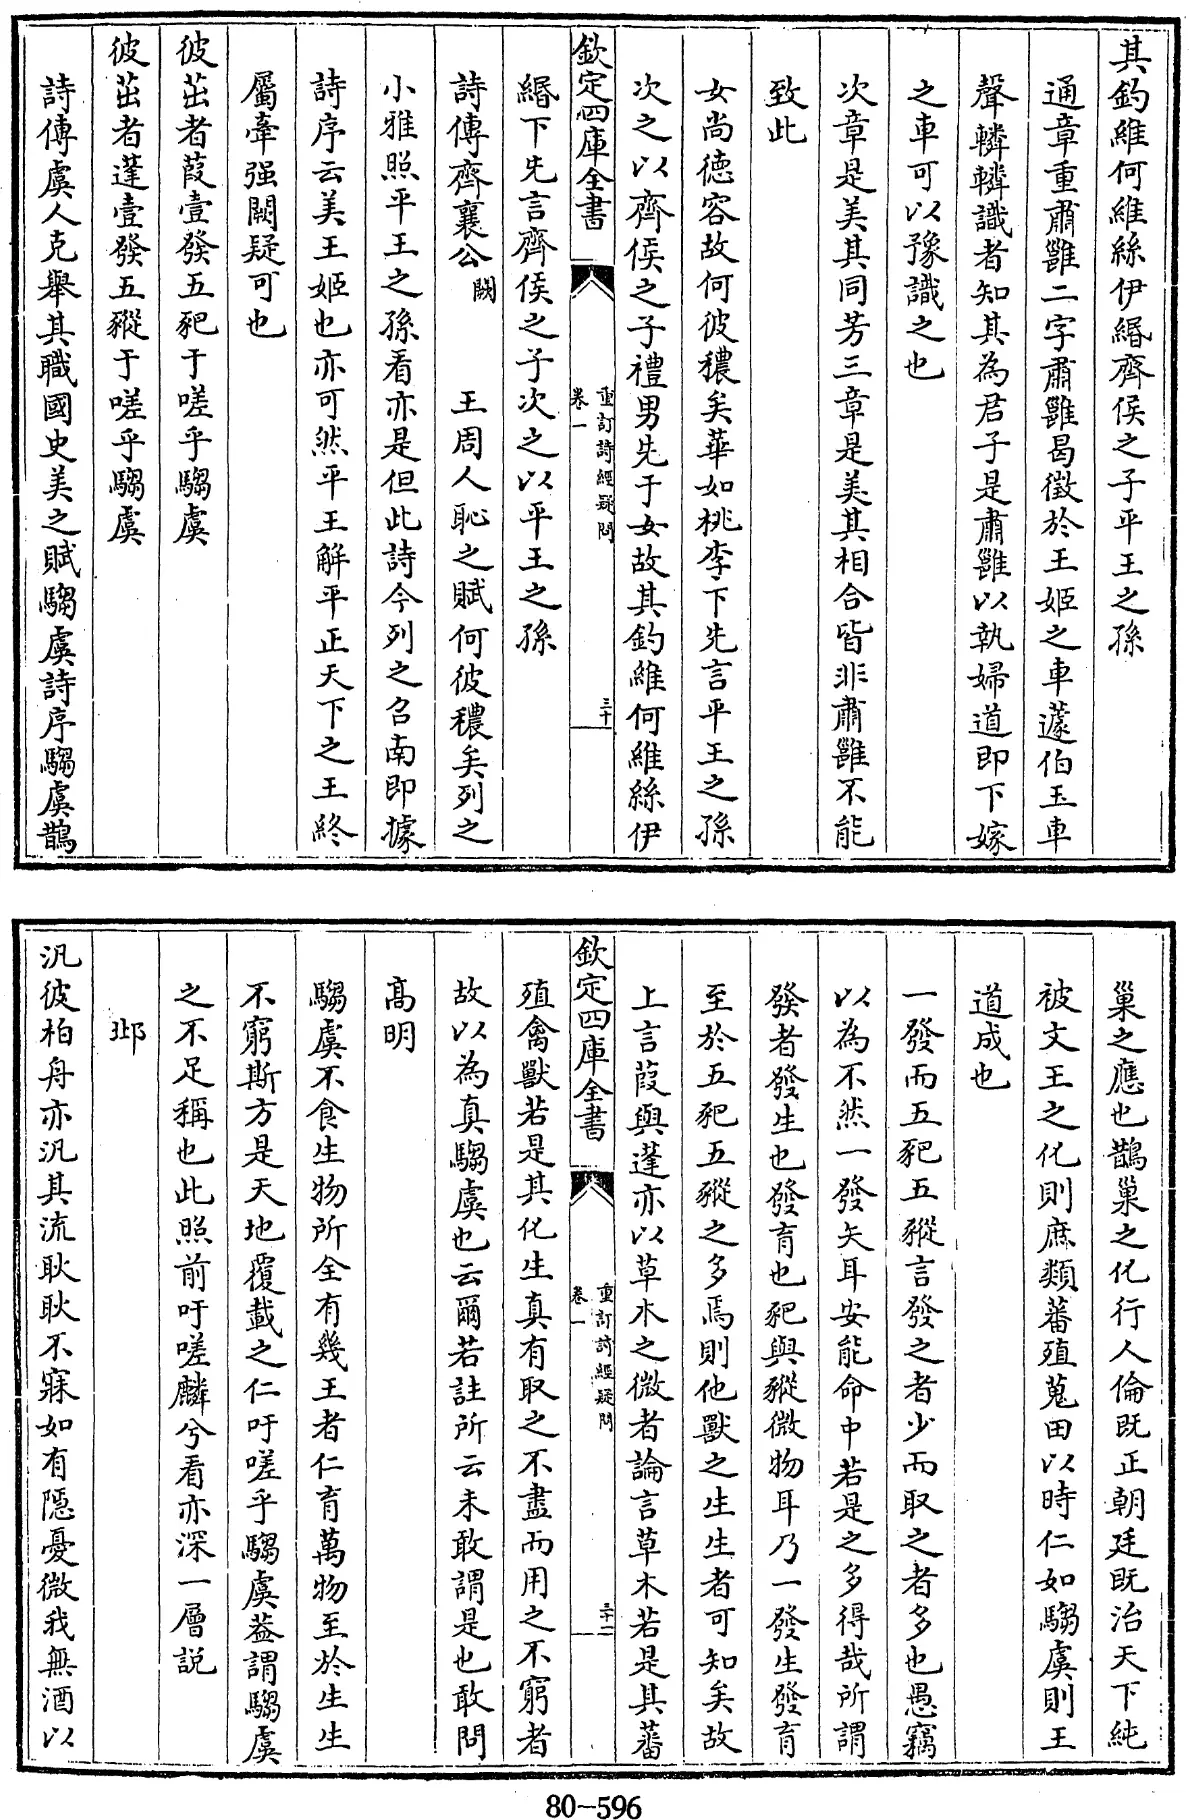 其釣維何維絲伊緡齊侯之子平王之孫
通章重肅雝二字肅雝曷徵於王姬之車蘧伯玉車
聲轔轔識者知其為君子是肅雝以執婦道即下嫁
之車可以豫識之也
次章是美其同芳三章是美其相合皆非肅雝不能
致此
女尚德容故何彼穠矣華如桃李下先言平王之孫
次之以齊侯之子禮男先于女故其釣維何維絲伊
欽定四庫全書
重訂詩經疑問
卷一
三十
緡下先言齊侯之子次之以平王之孫
詩傳齊襄公闕王周人恥之賦何彼穠矣列之
小雅照平王之孫看亦是但此詩今列之召南即據
詩序云美王姬也亦可然平王解平正天下之王終
屬牽强闕疑可也
彼茁者葭壹發五豝于嗟乎騶虞
彼茁者蓬壹發五豵于嗟乎騶虞
詩傳虞人克舉其職國史美之賦騶虞詩序騶虞鵲
巢之應也鵲巢之化行人倫既正朝廷既治天下純
被文王之化則庶類蕃殖蒐田以時仁如騶虞則王
道成也
一發而五豝五豵言發之者少而取之者多也愚竊
以為不然一發矢耳安能命中若是之多得哉所謂
發者發生也發育也豝與豵微物耳乃一發生發育
至於五豝五豵之多焉則他獸之生生者可知矣故
上言葭與蓬亦以草木之微者論言草木若是其蕃
欽定四庫全書
重訂詩經疑問
卷一
三十一
殖禽獸若是其化生真有取之不盡而用之不窮者
故以為真騶虞也云爾若註所云未敢謂是也敢問
高明
騶虞不食生物所全有幾王者仁育萬物至於生生
不窮斯方是天地覆載之仁吁嗟乎騶虞葢謂騶虞
之不足稱也此照前吁嗟麟兮看亦深一層説
邶
汎彼柏舟亦汎其流耿耿不寐如有隱憂微我無酒以
80-596